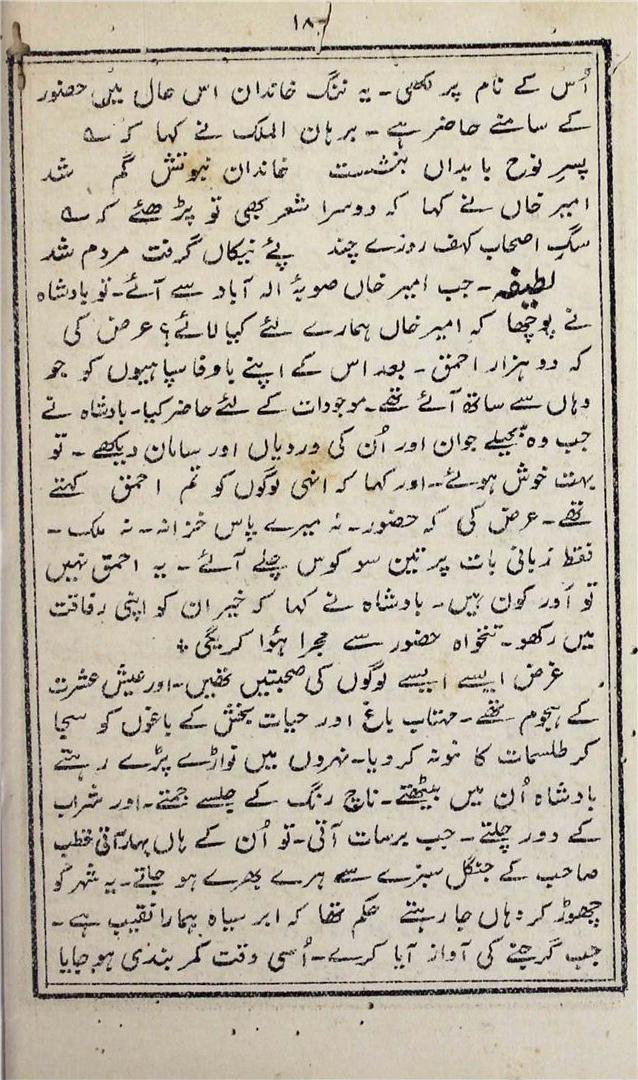 ۱۸
اُس کے نام پر لکھی۔ یہ ننگ خاندان اس حال میں حضور
کے سامنے حاضر ہے۔ برہان الملک نے کہا کہ ؎
پسرِ نوح با بداں بنشست خاندان نبوتش گم شد
امیر خاں نے کہا کہ دوسرا شعر بھی تو پڑھئے کہ ؎
سگِ اصحاب کہف روزے چند پئے نیکاں گرفت مردم شد
لطیفہ۔ جب امیر خاں صوبۂ الہ آباد سے آئے۔ تو بادشاہ
نے پوچھا کہ امیر خاں ہمارے لئے کیا لائے؟ عرض کی
کہ دو ہزار احمق۔ بعد اس کے اپنے باوفا سپاہیوں کو جو
وہاں سے ساتھ آئے تھے۔ موجودات کے لئے حاضر کیا۔ بادشاہ نے
جب وہ سجیلے جوان اور اُن کی وردیاں اور سامان دیکھے۔ تو
بہت خوش ہوئے۔ اور کہا کہ انہی لوگوں کو تم احمق کہتے
تھے۔ عرض کی کہ حضور۔ نہ میرے پاس خزانہ۔ نہ ملک۔
فقط زبانی بات پر تین سو کوس چلے آئے۔ یہ احمق نہیں
تو اَور کون ہیں۔ بادشاہ نے کہا کہ خیر ان کو اپنی رفاقت
میں رکھو۔ تنخواہ حضور سے مجرا ہؤا کریگی ٭
غرض ایسے ایسے لوگوں کی صحبتیں تھیں۔ اور عیش عشرت
کے ہجوم تھے۔ مہتاب باغ اور حیات بخش کے باغوں کو سجا
کر طلسمات کا نمونہ کر دیا۔ نہروں میں نواڑے پڑے رہتے
بادشاہ اُن میں بیٹھتے۔ ناچ رنگ کے جلسے جمتے۔ اور شراب
کے دور چلتے۔ جب برسات آتی۔ تو اُن کے ہاں بہار آتی قطب
صاحب کے جنگل سبزے سے ہرے بھرے ہو جاتے۔ یہ شہر کو
چھوڑ کر وہاں جا رہتے حکم تھا کہ ابر سیاہ ہمارا نقیب ہے۔
جب گرجنے کی آواز آیا کرے۔ اُسی وقت کمر بندی ہو جایا